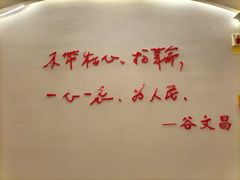 不带私心、搞革命，
一心一意、为人民。
—谷文昌